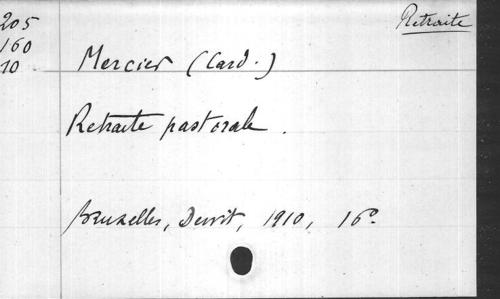 205
160
10
Retraite
Mercier (Card.)
Retraite pastorale.
Bruxelles, Dewit, 1910, 16°